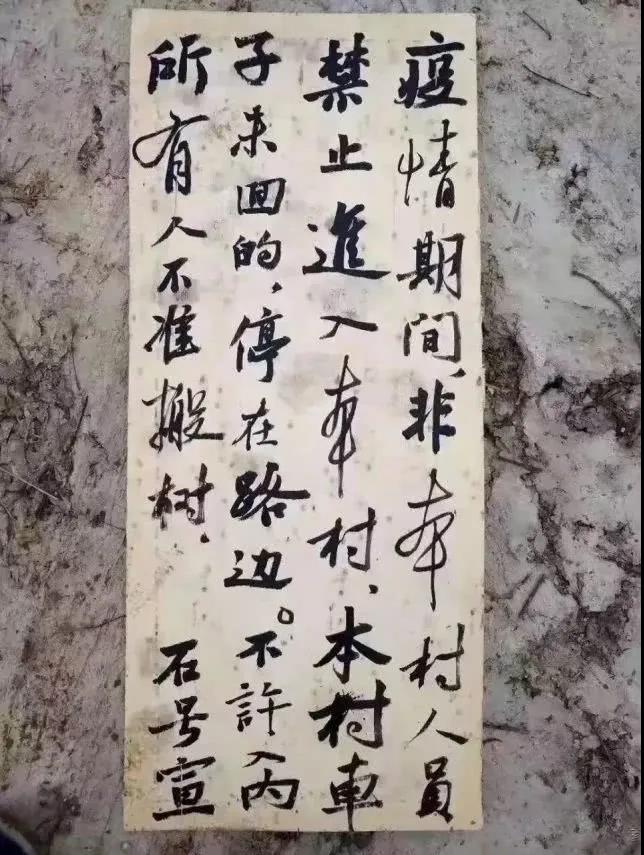 疫情期间、非本村人员
禁止進入本村、本村車
子来回的，停在路边。不許入内
所有人不准搬树．
石号宣